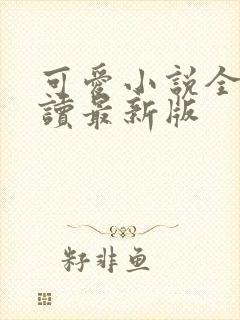 可愛小說全
讀最新版
籽非鱼